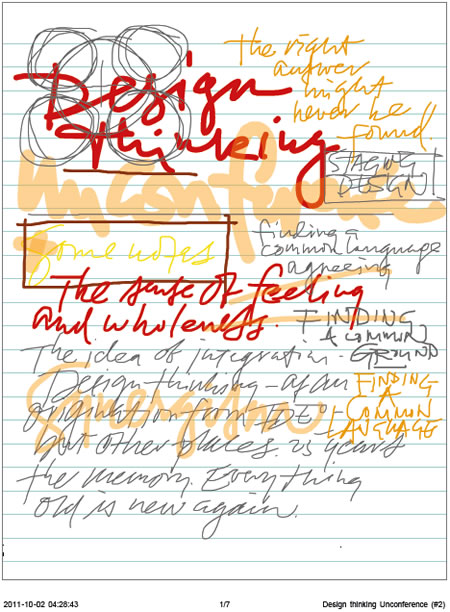 Design
thinking
The right
answer
might
never be
found.
Unconference
STAGING
DESIGN!
Some notes
finding a
common language
agreeing
The sense of feeling
and wholeness.
FINDING
A COMMON
GROUND
The idea of integration -
Design thinking - as an
origination from IDEO -
but other places. 25 years
the memory. Everything
old is new again.
FINDING
A
COMMON
LANGUAGE
2011-10-02 04:28:43
1/7
Design thinking Unconference (#2)